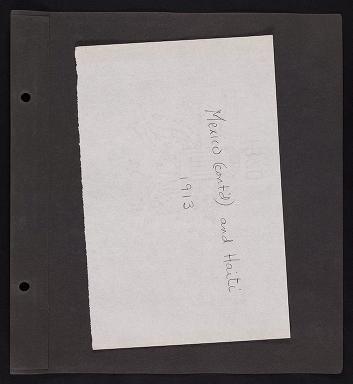 Mexico (cont'd) and Haiti
1913